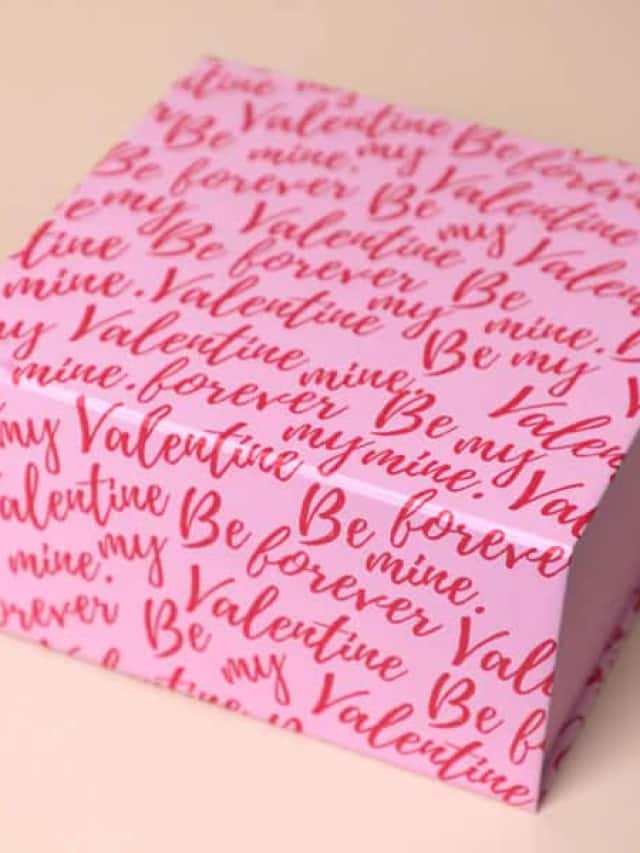 my
Valentine Be forever
Be mine. my Valentine
Be forever Be my Valentine
my Valentine Be
Be forever my mine.
mine. Valentine Be my
my Valentine mine. Valentine
mine. forever Be my
my Valentine my mine.
Valentine Be Be forever
mine. my forever mine.
forever Be Valentine
my Be
Valentine